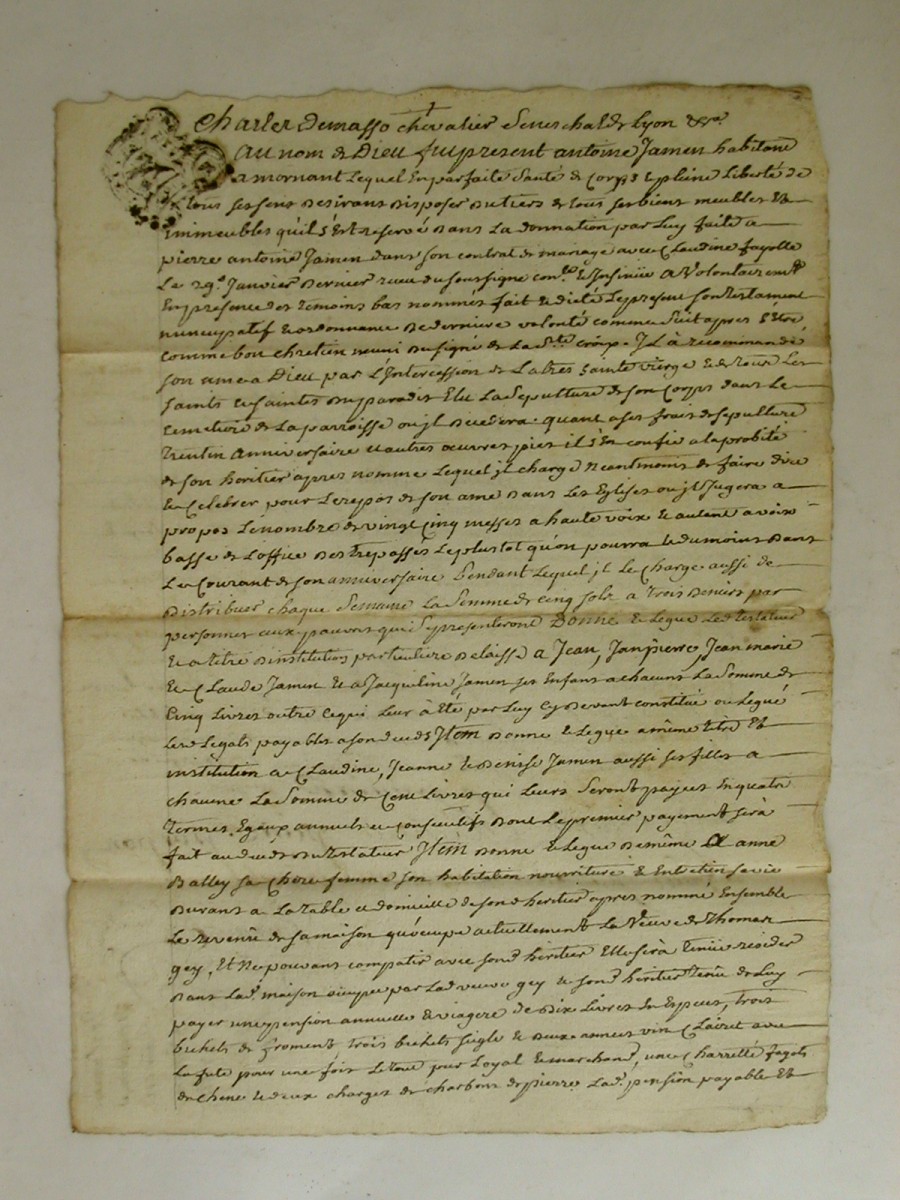 Charles Demasso chevalier Seneschal de Lyon &c.
au nom de Dieu fut present antoine Jamen habitant
a mornant Lequel En parfaite Santé de Corps & pleine Liberté de
tous ses sens Desirant Disposer Du tiers de tous ses bient meubles Et
immeubles qu'il s'Est reservé Dans La donnation par Luy faite a
pierre antoine Jamen dans son contrat de mariage avec Claudine fayolle
Le 29e Janvier Dernier receu du soussigné & Insinüé a Volontairemt
En presence des temoins bas nommés fait & dicté Le present son testament
nuncupatif & ordonnance De derniere volonté comme suit apres s'Etre
comme bon chretien muni Du signe de La Ste croix. Il à recommandé
son ame a Dieu par L'Intercession de La tres sainte vierge & de tous Les
saints & saintes Du paradis Elu La Sepulture de son Corps dans Le
Cemetiere de La parroisse ou jl Decedera quant a ses frais de sepulture
trentin Anniversaire et autres œuvres pies il s'En confie a la probité
de son heritier apres nommé Lequel jl charge neantmoins de faire dire
& Celebrer pour Le repos de son ame Dans Les Eglises ou jl Jugera a
propos Le nombre de vingt Cinq messes a haute voix & autant a voix
basse de L'office Des trepassés Le plustot qu'on pourra & du moins Dans
Le Courant de son anniversaire Pendant Lequel jl Le Charge aussi de
Distribuer chaque Semaine La Somme de Cinq sols a trois Deniers par
personnes aux pauvres qui se presenteront Donne & Legue Led testateur
& a titre D'institution particuliere Delaisse a Jean, Jan pierre, Jean marie
& Claude Jamen & a Jacqueline Jamen ses Enfans a chacuns La Somme de
Cinq Livres outre Ce qui Leur à Eté par Luy Cy Devant constitué ou Legué
Lesd Legats payables a son deceds Item Donne & Legue a même titre Et
institution a Claudine, Jeanne & Denise Jamen aussi ses filles a
chacune La Somme de Cent Livres qui Leurs Seront payées En quatre
termes Egaux annuels & Consecutifs Dont Le premier payement sera
fait au deceds Du testateur Item Donne & Legue De même A anne
Balley sa Chere femme son habitation nourriture & Entretien sa vie
Durant a La table et domicille de son d heritier apres nommé Ensemble
Le revenu de sa maison qu'ocupe actuellement La Veuve de Thomas
gey, Et Ne pouvans compatir avec sond heritier Elle sera tenüe resider
Dans Lad maison ocupée par Lad veuve gey & sond heritier tenu de Luy
payer une pension annuelle & viagere de Dix Livres En Especes, trois
bichets de froment trois bichets siegle & Deux annees vin Clairet avec
La fute pour une fois Le tout pur Loyal & marchand, une Charrette fagots
de chene & deux charges de charbons de pierre Lad pension payable Et